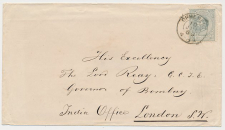 His Excellency
The Lord Reay. C.C.I.E.
Governor of Bombay
India Office London S.W.